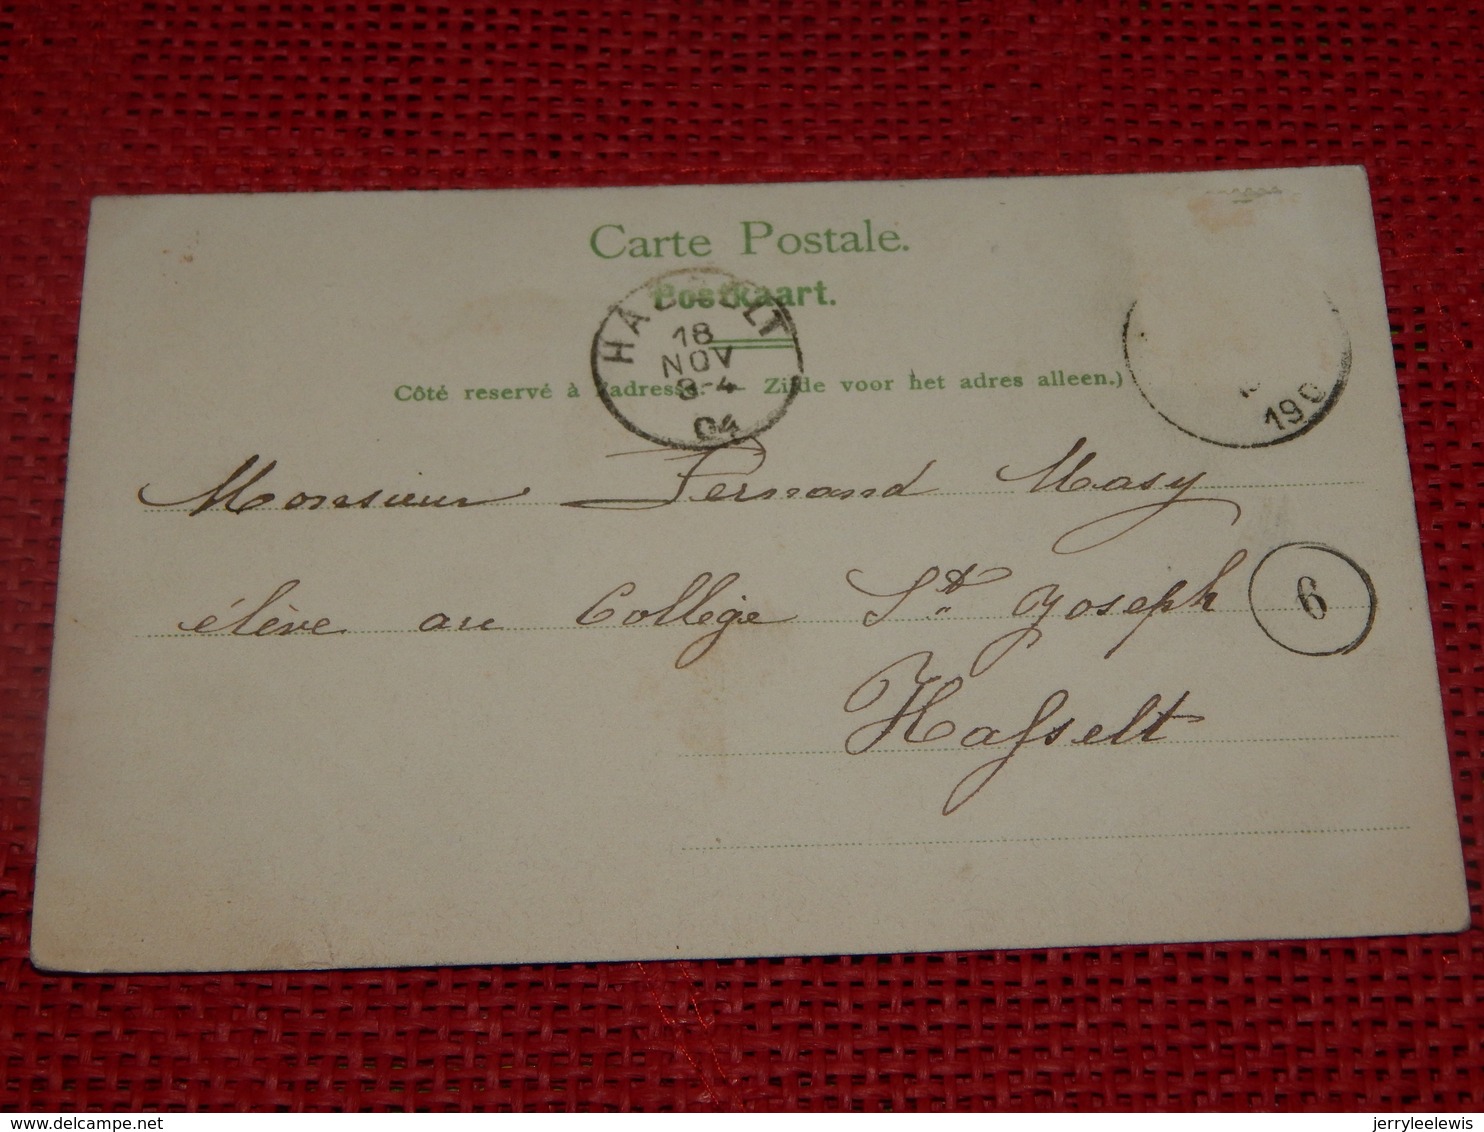 Carte Postale.
Postkaart.
HASSELT
18
NOV
8-4
04
190
Côté reservé à l'adresse. — Zijde voor het adres alleen.)
Monsieur Fernand Masy
élève au Collège St. Joseph
6
Hasselt
delcampe.net
jerryleelewis